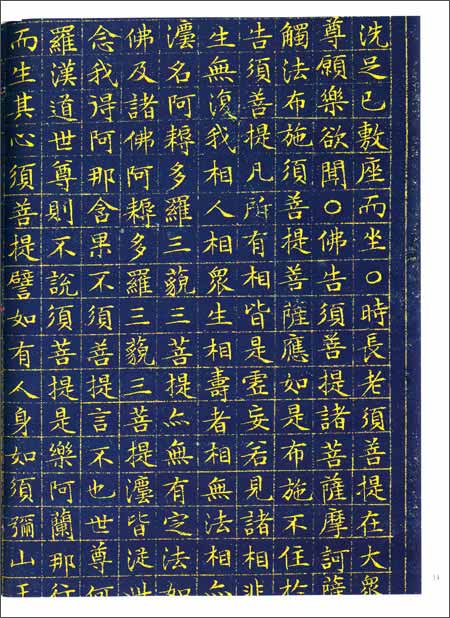 洗足已敷座而坐○時長老須菩提在大眾
尊願樂欲聞○佛告須菩提諸菩薩摩訶薩
觸法布施須菩提菩薩應如是布施不住於
告須菩提凡所有相皆是虛妄若見諸相非
生無復我相人相眾生相壽者相無法相亦
灋名阿耨多羅三藐三菩提亦無有定法如
佛及諸佛阿耨多羅三藐三菩提灋皆從此
念我得阿那含果不須菩提言不也世尊何
羅漢道世尊則不說須菩提是樂阿蘭那行
而生其心須菩提譬如有人身如須彌山王